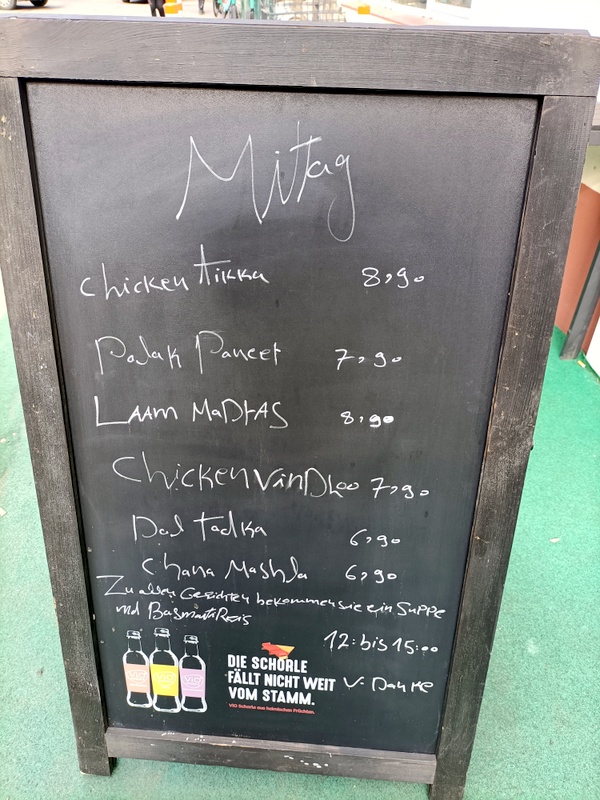 Mittag
Chicken tikka 8,90
Palak Paneer 7,90
Laam Madras 8,90
Chicken Vindloo 7,90
Dal tadka 6,90
Chana Mashla 6,90
Zu allen Gerichten bekommen sie ein Suppe
und Basmati Reis
12: bis 15:00
V. Danke
DIE SCHORLE
FÄLLT NICHT WEIT
VOM STAMM.
ViO Schorle aus heimischen Früchten.
ViO
ViO
ViO